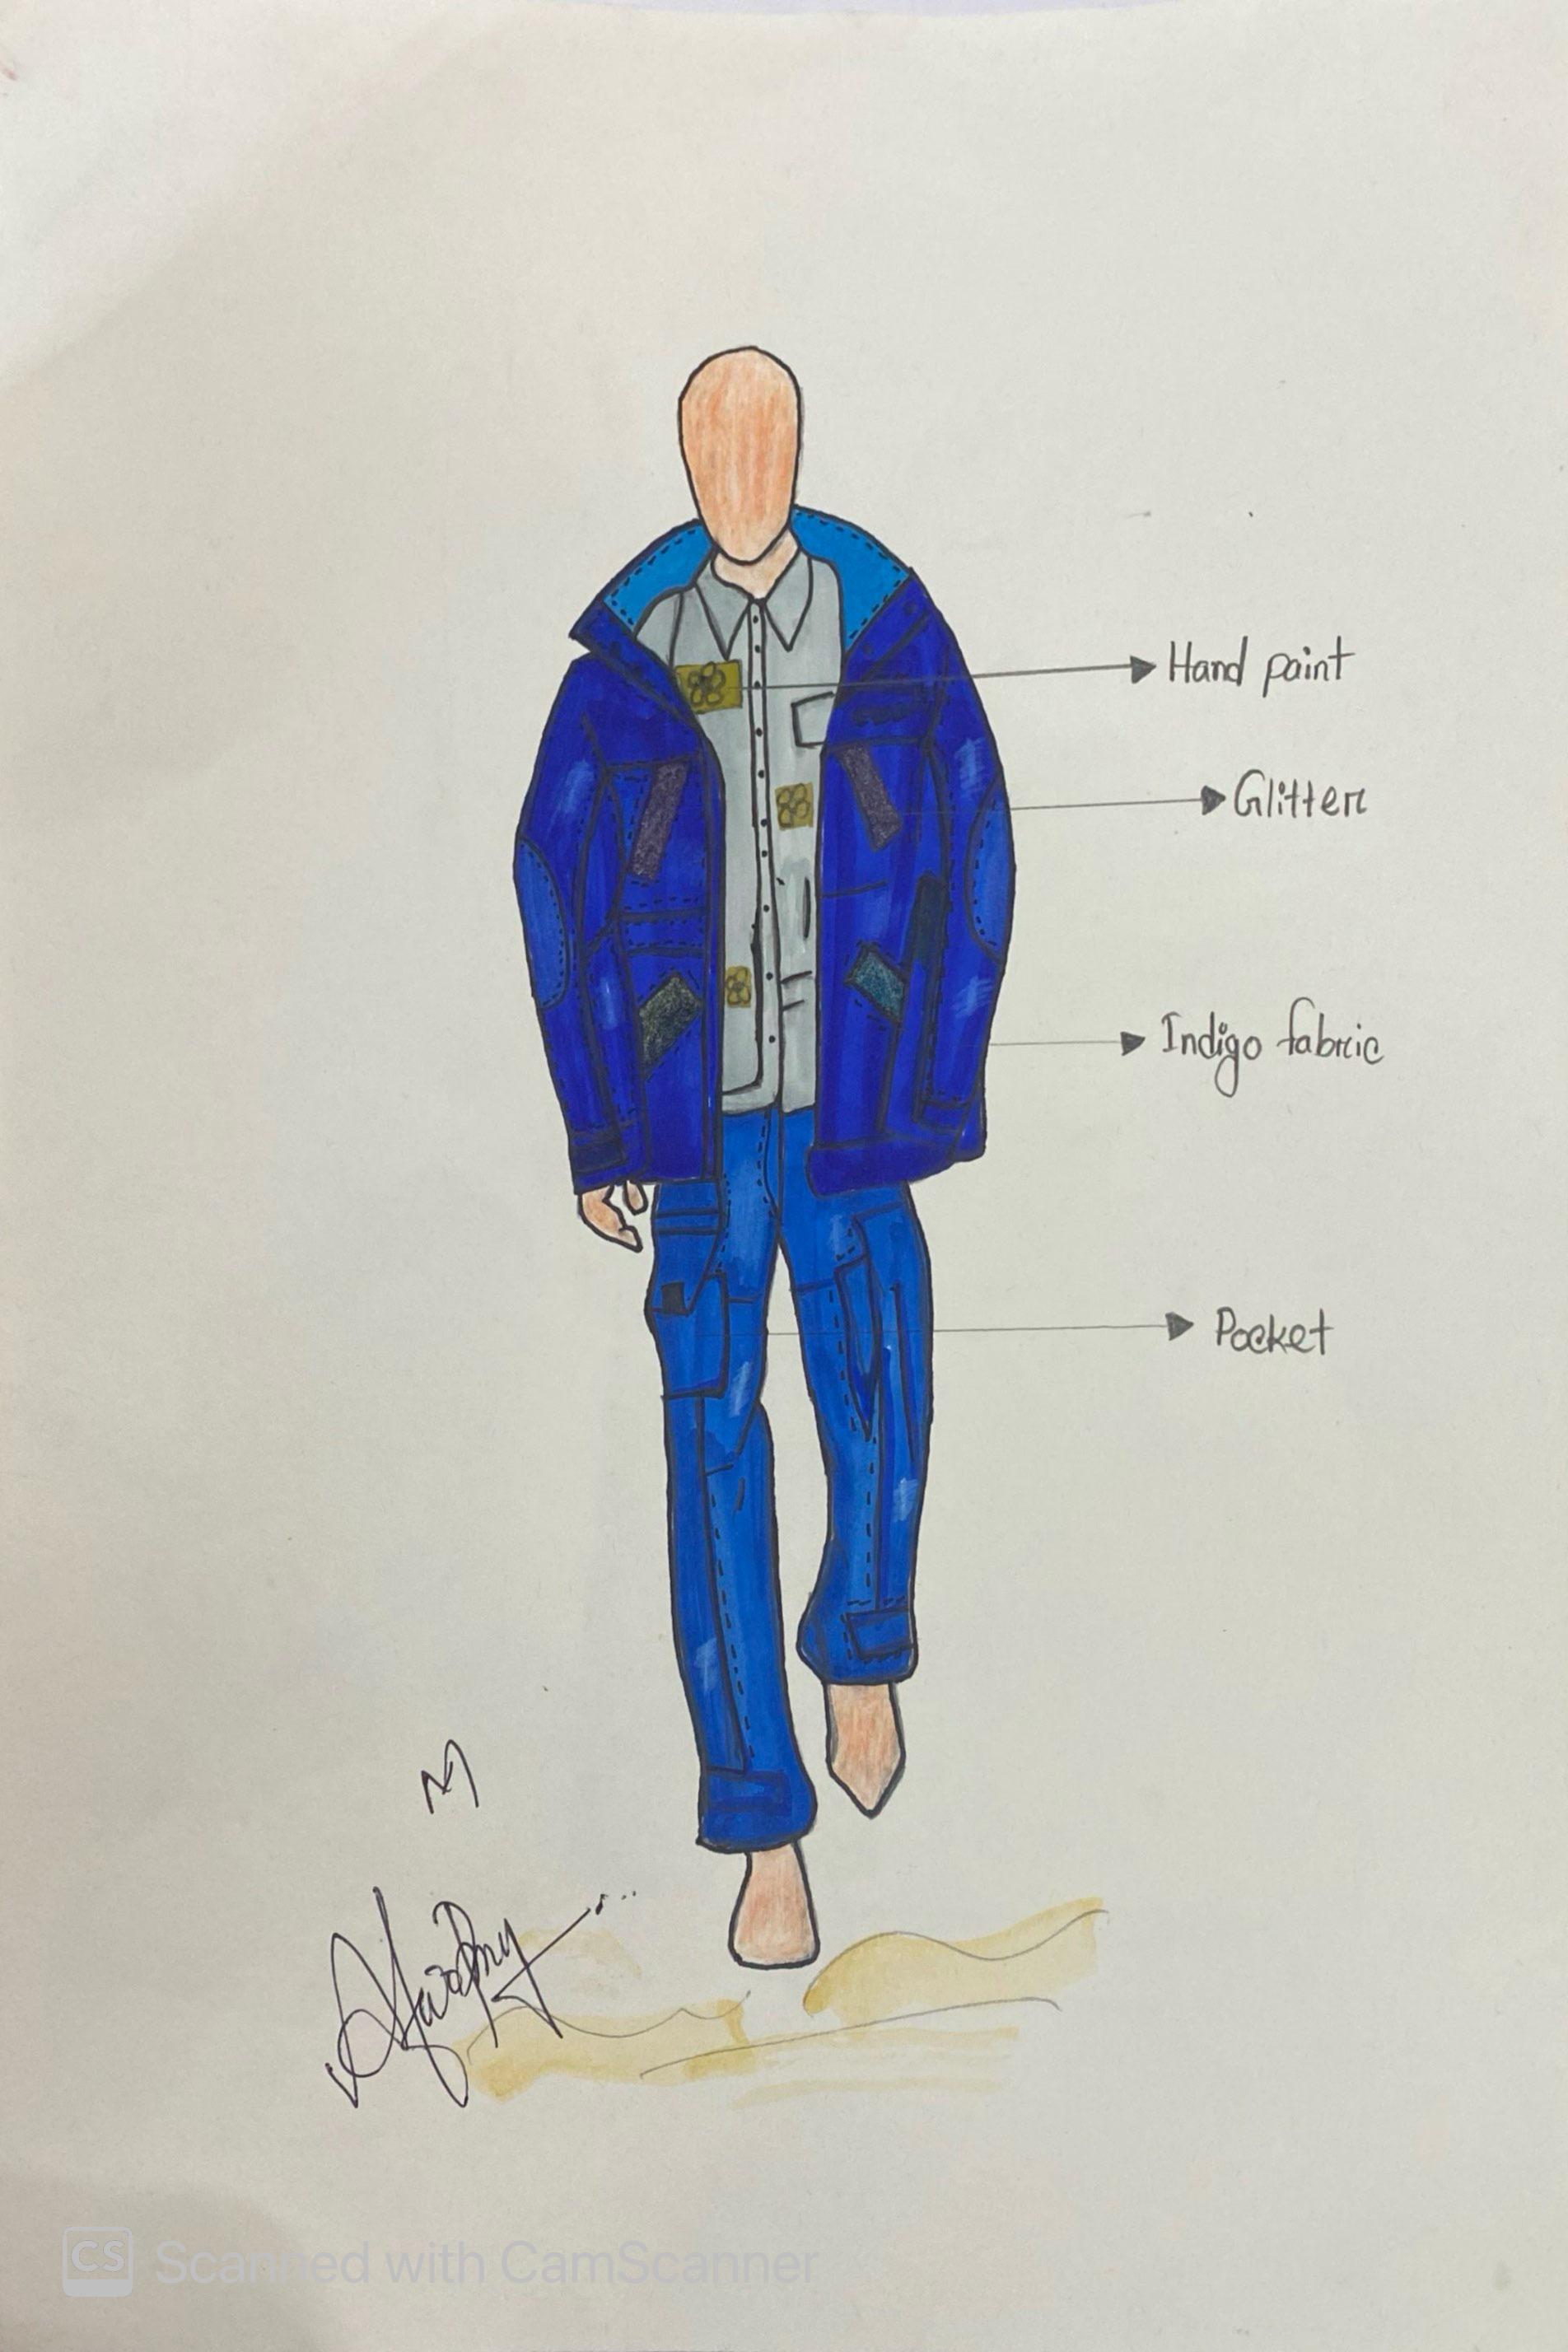 Hand paint
Glitter
Indigo fabric
Pocket
M
CS Scanned with CamScanner